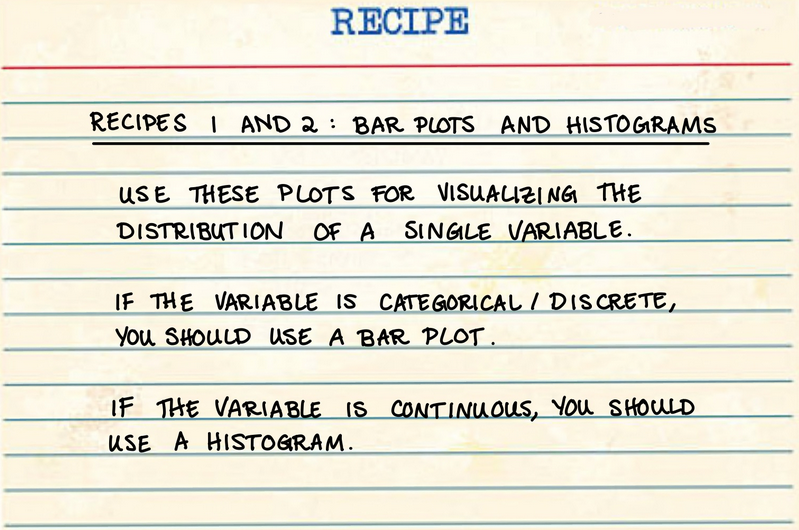 RECIPE
RECIPES 1 AND 2 : BAR PLOTS AND HISTOGRAMS
USE THESE PLOTS FOR VISUALIZING THE
DISTRIBUTION OF A SINGLE VARIABLE.
IF THE VARIABLE IS CATEGORICAL / DISCRETE,
YOU SHOULD USE A BAR PLOT.
IF THE VARIABLE IS CONTINUOUS, YOU SHOULD
USE A HISTOGRAM.